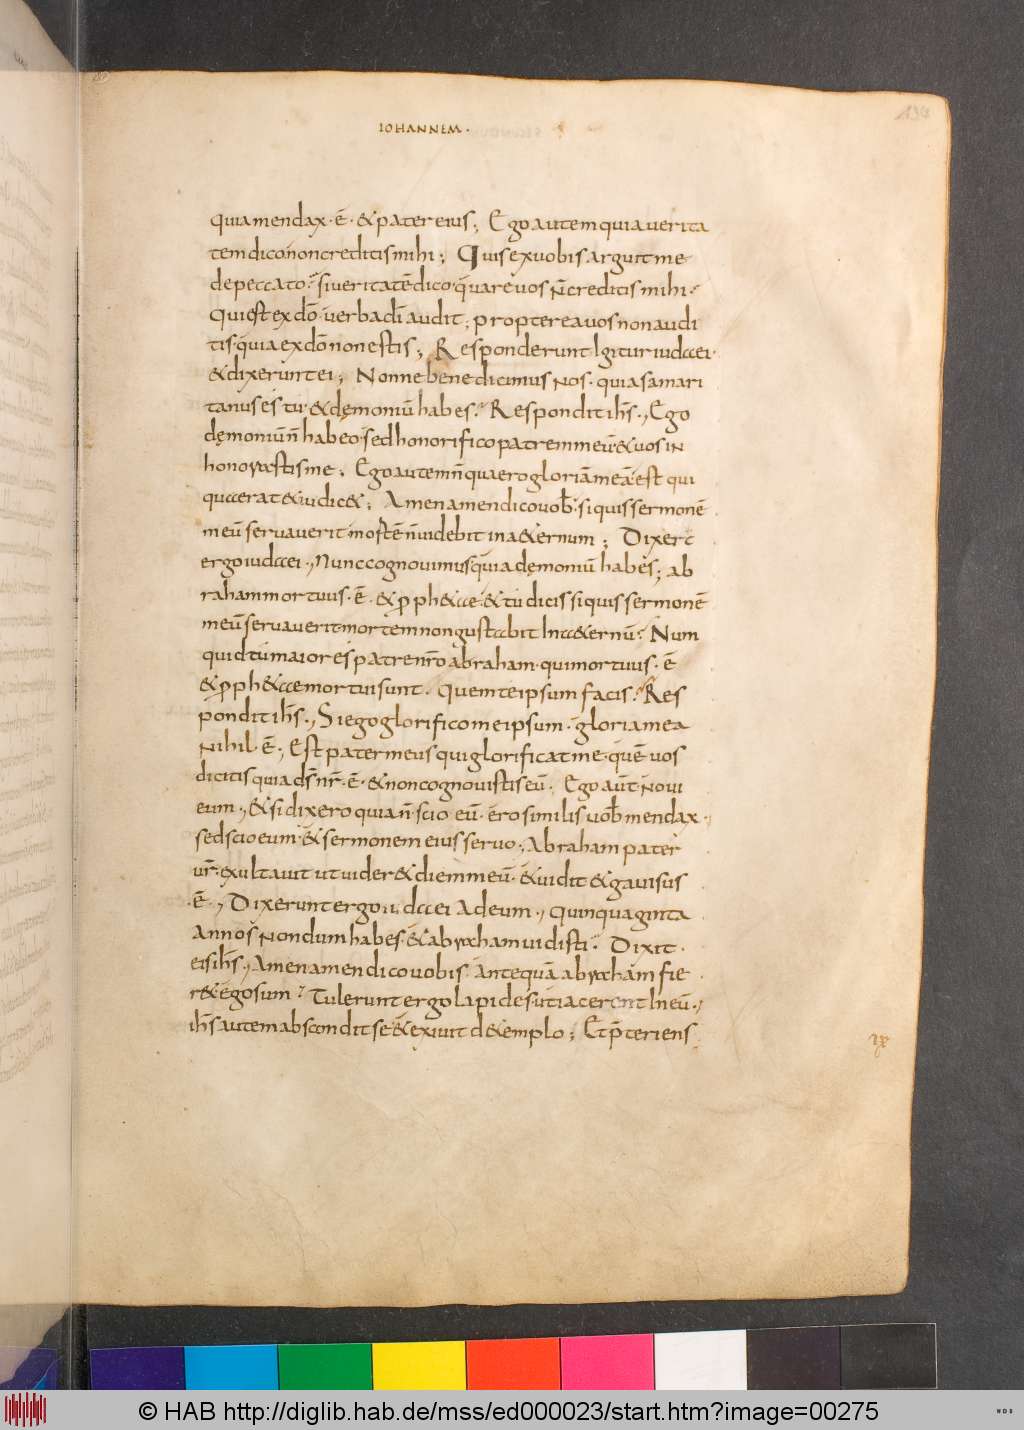 IOHANNEM·
134
quia mendax · ē · & pater eius ; Ego autem quia uerita
tem dico non creditis mihi ; Quis ex uobis arguit me
de peccato ? si ueritatē dico quare uos n̄ creditis mihi ?
Qui est ex dō · uerba dī audit ; propterea uos non audi
tis · quia ex dō non estis ; Responderunt Igitur iudaei ·
& dixerunt ei ; Nonne bene dicimus nos · quia samari
tanus es tu · & dęmoniū habes ? Respondit ih̄s ·, Ego
dęmoniū n̄ habeo · sed honorifico patrem meū & uos in
honorastis me ; Ego autem n̄ quaero gloriā meā · est qui
quaerat & iudic& ; Amen amen dico uob̄ · si quis sermonē
meū seruauerit mortē n̄ uidebit in a&ernum ; Dixer̄
ergo iudaei ·, Nunc cognouimus quia dęmoniū habes ; ab
raham mortuus · ē · & p̄ph&ae · & tu dicis si quis sermonē
meū seruauerit mortem non gustabit In a&ernū ? Num
quid tu maior es patre nr̄o abraham · qui mortuus · ē
& p̄ph&ae mortui sunt · Quem te ipsum facis ? Res
pondit ih̄s ·, Si ego glorifico me ipsum · gloria mea
nihil · ē ·, Est pater meus qui glorificat me · quē uos
dicitis quia ds̄ nr̄ · ē · & non cognouistis eū · Ego aūt noui
eum ·, & si dixero quia n̄ scio eū · ero similis uob̄ mendax ·
sed scio eum · & sermonem eius seruo ·, Abraham pater
ur̄ · exultauit ut uider& diem meū · & uidit & gauisus
· ē ·, Dixerunt ergo iudaei Ad eum ·, Quinquaginta
Annos nondum habes · & abraham uidisti · Dixit ·
eis ih̄s ·, Amen amen dico uobis · antequā abraham fie
r& ego sum ? Tulerunt ergo lapides · ut iacerent In eū ·,
ih̄s autem abscondit se · & exiuit d& emplo ; Et p̄teriens
ix
© HAB http://diglib.hab.de/mss/ed000023/start.htm?image=00275